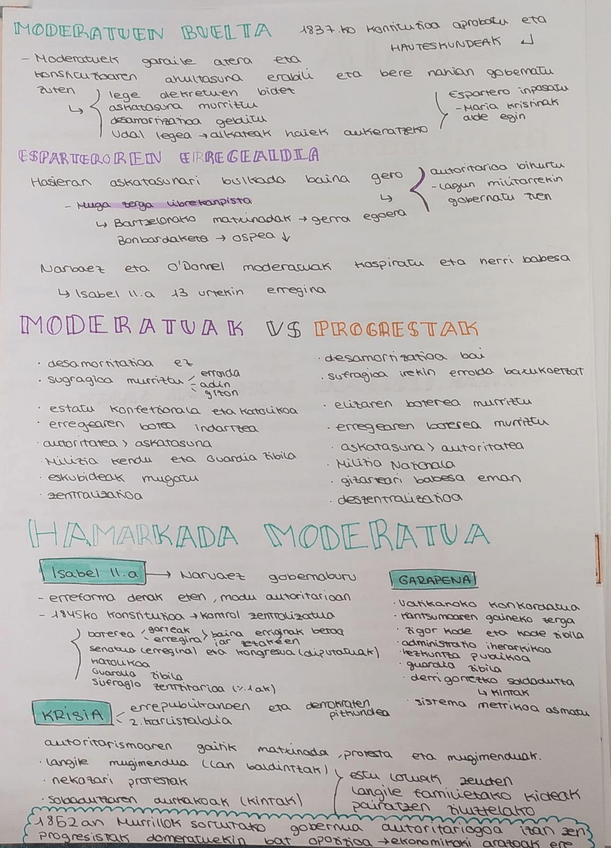 MODERATUEN BUELTA 1837.ko Konstituzioa aprobatu eta
HAUTESKUNDEAK ↲
- Moderatuek garaile atera eta
konstituzioaren ahultasuna erabili eta bere nahian gobernatu
zuten
↳ lege dekretuen bidez
askatasuna murriztu
desamortizazioa gelditu
Udal legea → alkateak haiek aukeratzeko
Espartero inposatu
- Maria Kristinak
alde egin
ESPARTEROREN ERREGEALDIA
Hasieran askatasunari bultzada baina gero
autoritarioa bihurtu
- lagun militarrekin
gobernatu zuen
- Muga zerga librekanpista
↳ Bartzelonako matxinadak → gerra egoera
Bonbardaketa → ospea ↓
Narbaez eta O'Donnel moderatuak konspiratu eta herri babesa
↳ Isabel II.a 13 urtekin erregina
MODERATUAK VS PROGRESTAK
· desamortitazioa ez
· sugragioa murriztu
errenta
adin
gizon
· estatu konfesionala eta katolikoa
· erregearen boterea indartzea
· autoritatea > askatasuna
· Milizia kendu eta Guardia Zibila
· eskubideak mugatu
· zentralizazioa
· desamortizazioa bai
· sufragioa irekin errenta batukoeztat
· elizaren boterea murriztu
· erregearen boterea murriztu
· askatasuna > autoritatea
· Milizia Nazionala
· gizarteari babesa eman
· deszentralizazioa
HAMARKADA MODERATUA
Isabel II.a → Narvaez gobernaburu
- erreforma denak eten, modu autoritarioan
- 1845ko konstituzioa → kontrol zentralizatua
boterea
gorteak
erregina
baina erreginak betoa
jar zezakeen
senatua (erregina) eta kongresua (diputatuak)
katolikoa
Guardia Zibila
sufragio zentsitarioa (%1ak)
GARAPENA
· Vatikanoko konkordatua
· kontsumoaren gaineko zerga
· zigor kode eta kode zibila
· administrazio hierarkikoa
· hezkuntza publikoa
· guardia zibila
· derrigorrezko soldadutza
↳ kintak
· sistema metrikoa asmatu
KRISIA
errepublikanoen eta demokraten
piztundea
2. karlistaldia
autoritarismoaren gaitik matxinada, protesta eta mugimenduak.
· langile mugimendua (lan baldintzak)
· nekazari protestak
· soldadutzaren aurkakoak (kintak)
estu lotuak zeuden
langile familietako kideak
pairatzen zituztelako
1852an Murrillok sortutako gobernua autoritarioagoa izan zen
progresistak domeratuekin bat opozizioa → ekonomikoki arazoak ere